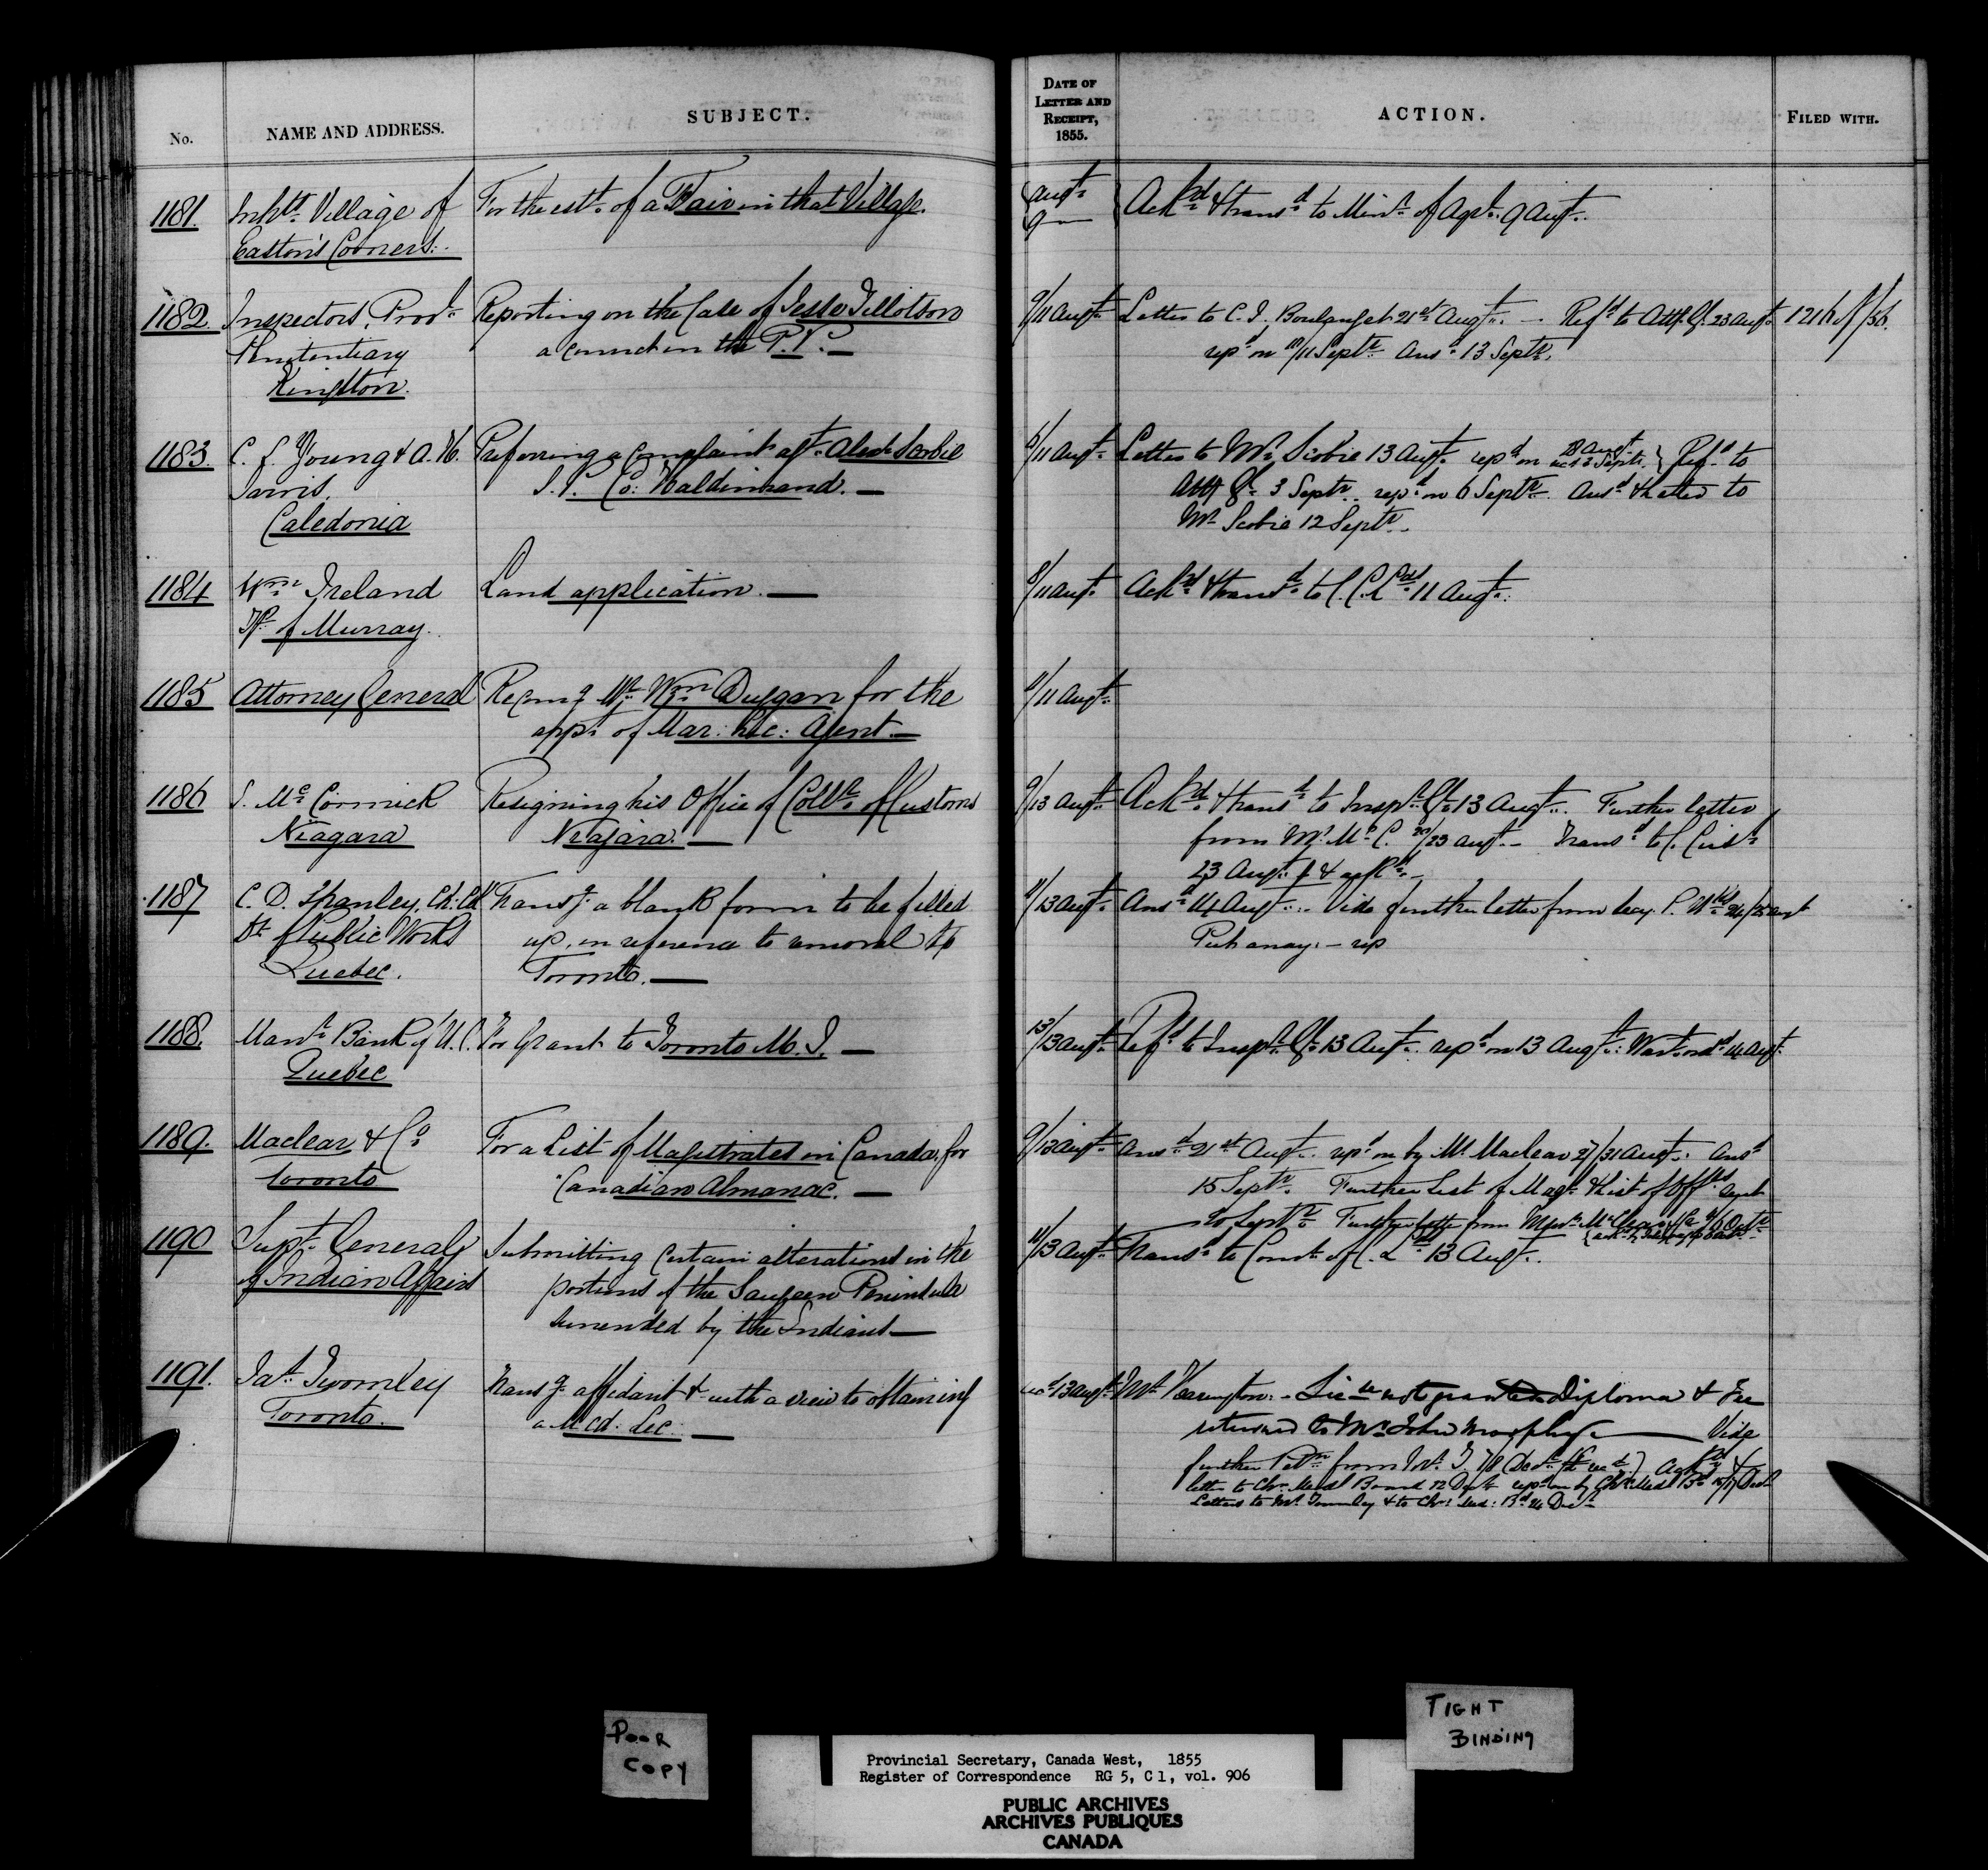 No.
NAME AND ADDRESS.
SUBJECT.
DATE OF
LETTER AND
RECEIPT,
1855.
ACTION.
FILED WITH.
1181. Inhts. Village of
Easton's Corners.
For the estt. of a Fair in that Village.
Augt. 9
Ackd. & transd. to Minr. of Agrl. 9 Augt.
1182. Inspectors, Provl.
Penitentiary
Kingston.
Reporting on the Case of Jesse Tillotson
a convict in the P. P. —
9/11 Augt.
Letter to C. J. 21st Augt. — Refd. to Atty. Gl. 23 Augt.
repd. on 10/11 Septr. Ansd. 13 Septr.
1216 of /56.
1183. C. J. Young & A. H.
Jarvis,
Caledonia
Preferring a complaint agt. Alexr. Scobie
J. P. Co: Haldimand. —
6/11 Augt.
Letter to Mr. Scobie 13 Augt. repd. on 28 Augt. recd. 3 Septr. } Refd. to
Atty Gl. 3 Septr. repd. on 6 Septr. Ansd. & letter to
Mr. Scobie 12 Septr.
1184 Wm. Ireland
Tp. of Murray.
Land application. —
8/11 Augt.
Ackd. & transd. to C. C. Lds. 11 Augt.
1185 Attorney General
Recomg. Mr. Wm. Duggan for the
appt. of Mar: Lic: Agent. —
9/11 Augt.
1186 J. McCormick
Niagara
Resigning his Office of Collr. of Customs
Niagara. —
9/13 Augt.
Ackd. & transd. to Inspr. Gl. 13 Augt. Further letter
from Mr. McC. 20/23 Augt. — Transd. to C.
23 Augt. & ackd. —
1187 C. D. Shanley, Ch: Clk
Dt. Public Works
Quebec.
Transg. a blank form to be filled
up, in reference to removal to
Toronto. —
11/13 Augt.
Ansd. 14 Augt. Vide further letter from Secy. P. Wks. 24/25 Augt
Put away. — rep
1188. Manr. Bank of U. C.
Quebec
For Grant to Toronto M. I. —
13/13 Augt.
Refd. to Inspr. Gl. 13 Augt. repd. on 13 Augt. Wart. ordd. 14 Augt.
1189. Maclear & Co.
Toronto
For a List of Magistrates in Canada, for
"Canadian Almanac. —
9/13 Augt.
Ansd. 21st Augt. repd. on by Mr. Maclear 27/31 Augt. Ansd.
15 Septr. Further List of Magts. & list of Offrs. sent
20 Septr. Further letter from Messrs. Maclear & Co 4/6 Octr.
1190 Supt. General
of Indian Affairs
Submitting certain alterations in the
portions of the Saugeen Peninsula
surrended by the Indians —
11/13 Augt.
Transd. to Comr. of C. Lds. 13 Augt.
1191. Jas. Twomley
Toronto.
Transg. affidavit & with a view to obtaining
a Med. Lic. —
recd. 13 Augt.
Mr. Harington. — Lice. not granted Diploma & Fee
returned to Mr. John Murphy — Vide
further Petn. from Mr. T. 7/8 Decr. Ackd. &
letter to Chn. Medl Board 12 Decr. repd. on by Chn. Medl Bd. 15/17 Decr.
Letters to Mr. Twomley & to Chn: Med: Bd. 24 Decr.
POOR
COPY
TIGHT
BINDING
Provincial Secretary, Canada West, 1855
Register of Correspondence RG 5, C 1, vol. 906
PUBLIC ARCHIVES
ARCHIVES PUBLIQUES
CANADA